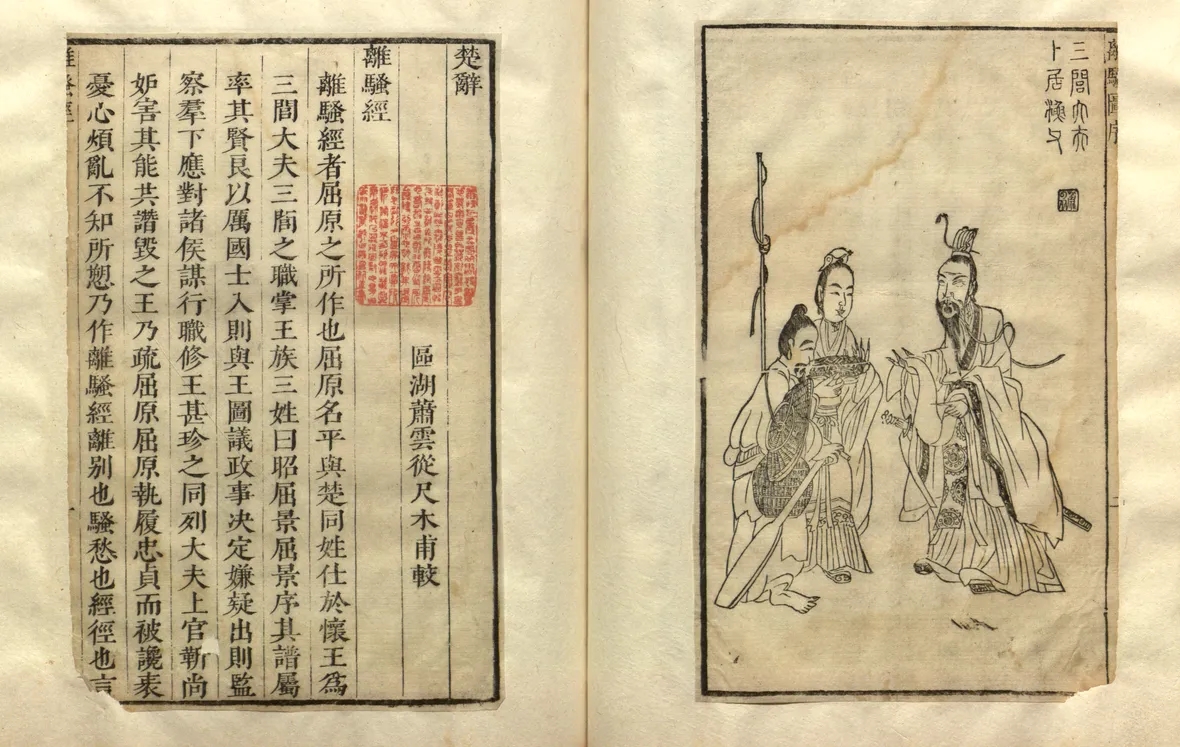 三閭大夫
卜居漁父
離騷圖序
二
楚辭
離騷經
區湖蕭雲從尺木甫較
離騷經者屈原之所作也屈原名平與楚同姓仕於懷王爲
三閭大夫三閭之職掌王族三姓曰昭屈景屈景序其譜屬
率其賢良以厲國士入則與王圖議政事决定嫌疑出則監
察羣下應對諸侯謀行職修王甚珍之同列大夫上官靳尚
妒害其能共譖毀之王乃疏屈原屈原執履忠貞而被讒衺
憂心煩亂不知所愬乃作離騷經離别也騷愁也經徑也言
離騷經